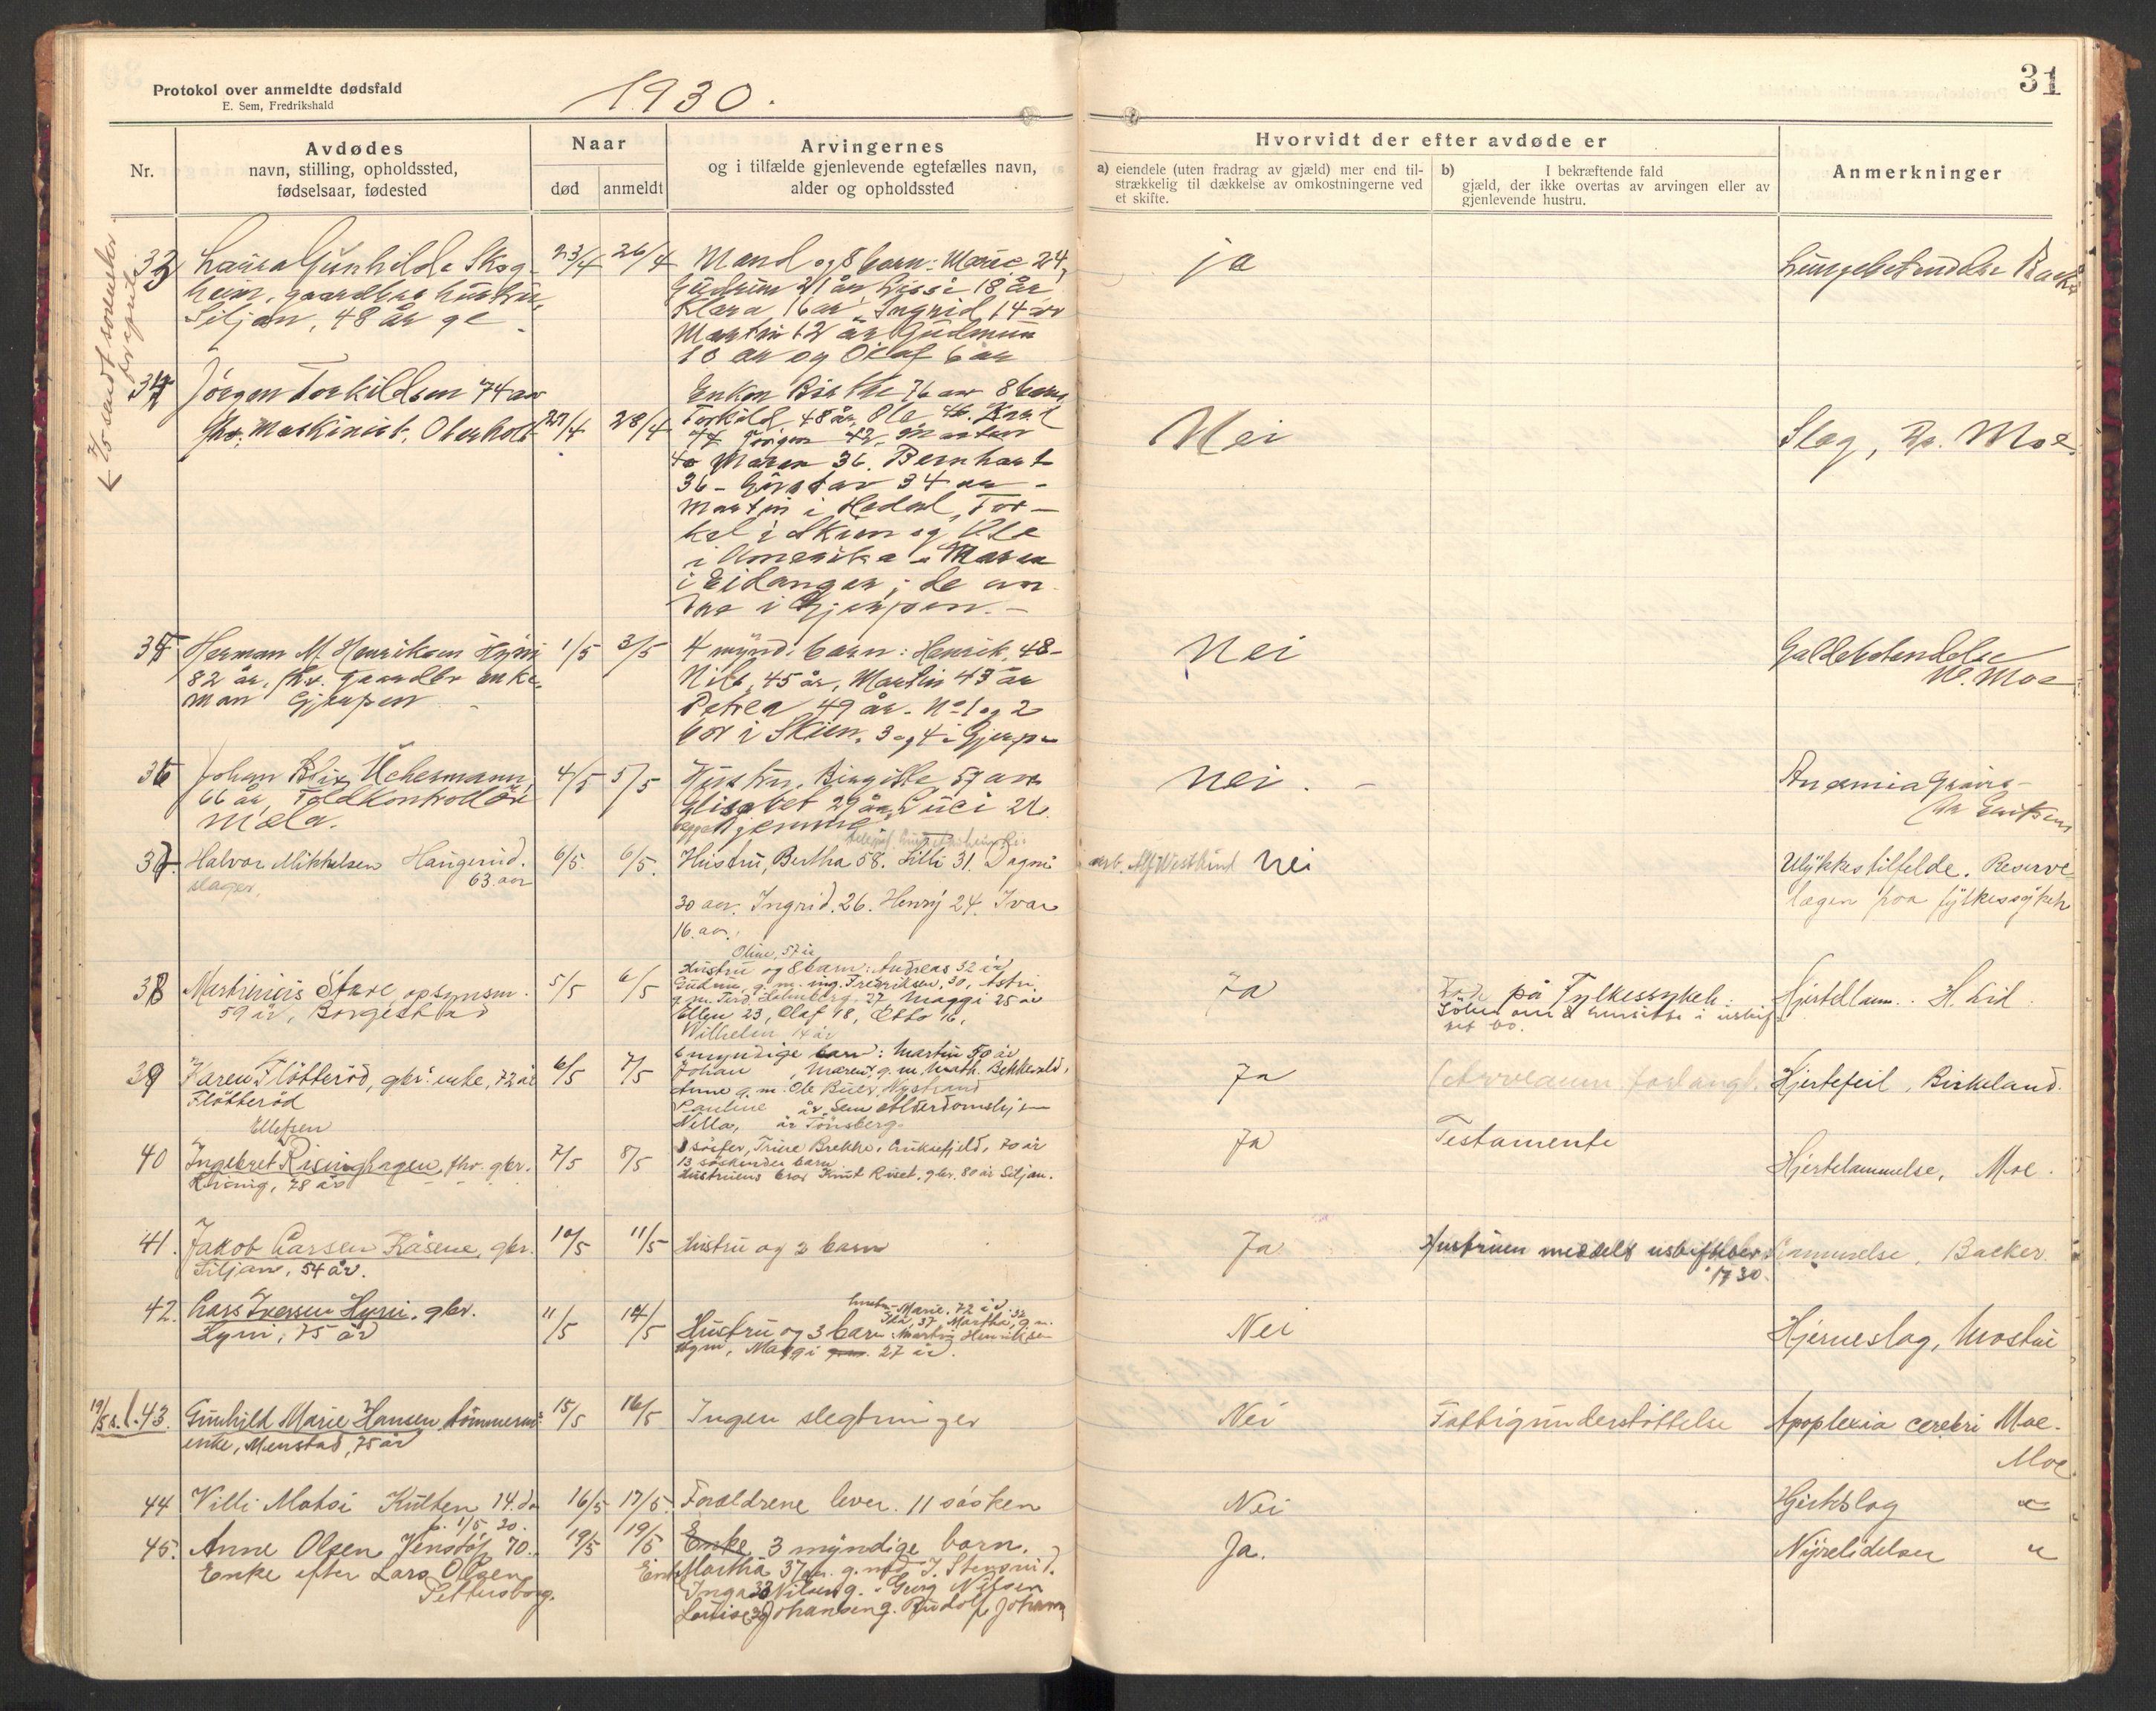 Protokol over anmeldte dødsfald
E. Sem, Fredrikshald
1930.
31
Nr.
Avdødes
navn, stilling, opholdssted,
fødselsaar, fødested
Naar
død
anmeldt
Arvingernes
og i tilfælde gjenlevende egtefælles navn,
alder og opholdssted
Hvorvidt der efter avdøde er
a) eiendele (uten fradrag av gjæld) mer end til-
strækkelig til dækkelse av omkostningerne ved
et skifte.
b) I bekræftende fald
gjæld, der ikke overtas av arvingen eller av
gjenlevende hustru.
Anmerkninger
33 Laura Gunhilde Skog-
heim, gaardbr hustru,
Siljan, 48 år g
23/4 26/4
Mand og 8 barn: Marie 24,
Gudrun 21 år Lissi 18 år
Klara 16 år, Ingrid 14 år
Martin 12 år Gudmun
10 år og Olaf 6 år
ja
Lungebetendelse
34 Jørgen Torkildsen 74 aar
fhv. Maskinist, Oterholt
27/4 28/4
Enken Birthe 76 aar 8 barn
Torkild 48 år, Ole 46. Knud
44 Jørgen 42, Marten
40 Maren 36. Bernhart
36 - Gustav 34 aar -
Martin i Hedal, Tor-
kel i Skien og Ole
i Amerika - Maren
i Eidanger; de an-
dre i Gjerpen. -
Nei
Slag, Dr. Moe
35 Herman M Henriksen Hyni
82 år, fhv. gaardbr enke-
man Gjerpen
1/5 3/5
4 mynd. barn: Henrik, 48 -
Nils, 45 år, Martin 43 år
Petrea 49 år. No 1 og 2
bor i Skien, 3 og 4 i Gjerpen
Nei
Galdebetendelse
Moe
36 Johan Blix Uchermann,
66 år, Toldkontrollør
Mæla.
4/5 5/5
Hustru, Birgitte 57 aar
Elisabet 29 år, Luci 21
begge hjemme
Nei. -
Anæmia gravis -
37 Halvor Mikkelsen Haugerud.
63. aar
slager,
6/5. 6/5.
Hustru, Bertha 58. Lilli 31. Dagni
30 aar. Ingrid. 26. Henry 24. Ivar
16. aar.
Nei
Ulykkestilfelde. Reserve-
lægen paa fylkessykeh
38 Martinius Stare, opsynsm.
59 år, Borgestad
5/5 6/5
Oline, 57 år
Hustru og 8 barn: Andreas 32 år,
Gudrun, g.m. ing. Fredriksen, 30, Astri
g.m. Ferd. Holmberg, 27 Maggi 25 år
Ellen 23, Olaf 18, Otto 16,
Wilhelm 14 år
Ja
på Fylkessykeh:
Hjertelam. H. Lid.
39 Karen Fløtterød, gbr. enke, 72 år
Fløtterød
6/5 7/5
6 myndige barn: Martin 50 år
Johan , Maren, g.m. Math. Bekkevold,
Anne g.m. Ole Buer, Nystrand
Pauline år, Sem Alderdomshjem
Nilla, år Tønsberg.
Ja
Hjertefeil, Birkeland.
40 Ingebret Ellefsen Risinghagen, fhv. gbr.
Rising, 78 år
7/5 8/5
1 søster, Trine Brekke, 70 år
13 søskendes barn
Hustruens bror Knut Riset, gbr. 80 år Siljan.
Ja
Testamente
Hjertelammelse, Moe.
41. Jakob Larsen Kåsene, gbr.
Siljan, 54 år.
10/5 11/5
Hustru og 2 barn
Ja
Hustruen meddelt uskifte
1930.
Lammelse, Backer
42. Lars Iversen Hyni, gbr.
Hyni, 75 år
11/5 14/5
Marie, 72 år
Hustru og 3 barn: Martin Henriksen
Hyni, Maggi 27 år.
Nei
Hjerneslag, Mostue
19/5 43. Gunhild Marie Hansen, tømmerm.
enke, Menstad, 75 år
15/5 16/5
Ingen slegtninger
Nei
Fattigunderstøttelse
Apoplexia cerebri Moe.
44 Villi Matsi Kulten 14. da
f. 1/5 30.
16/5 17/5.
Forældrene lever. 11 søsken
Nei
Hjerteslag
Moe
45. Anne Olsen 70.
Enke efter Lars Olsen
Pettersborg.
19/5 19/5
Enke 3 myndige barn.
Martha 37 aar. g. med J. Stensrud.
Inga 33 Nilsen g. - Georg Nilsen
Louise Johansen g. Rudolf Johansen
Ja.
Nyrelidelser "